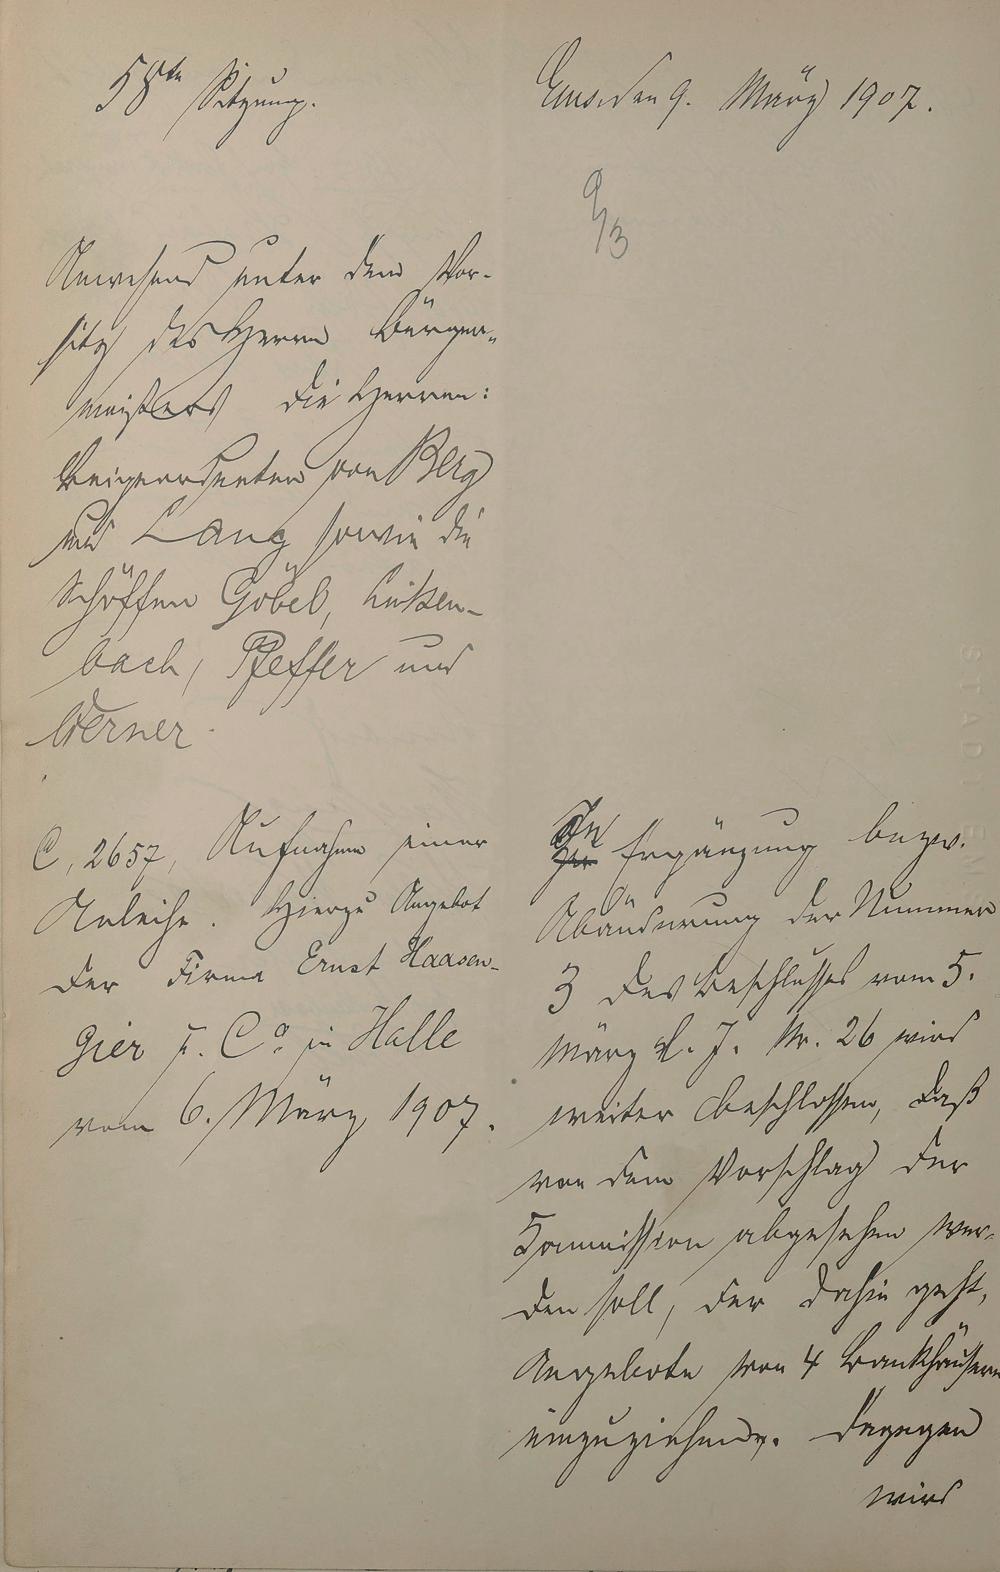 58te Sitzung.
Ems, den 9. März 1907.
9/3
Anwesend unter dem Vor-
sitz des Herrn Bürger-
meisters die Herren:
Beigeordneten von Berg
und Lang sowie die
Schöffen Göbel, Linken-
bach, Pfeffer und
Werner.
C. 2657, Aufnahme einer
Anleihe. Hierzu Angebot
der Firma Ernst Haasen-
gier u. Co. in Halle
vom 6. März 1907.
In Ergänzung bezw.
Abänderung der Nummer
3 des Beschlusses vom 5.
März d. J. Nr. 26 wird
weiter beschlossen, daß
von dem Vorschlag der
Kommission abgesehen wer-
den soll, der dahin geht,
Angebote von 4 Bankhäusern
einzuziehen. Dagegen
wird